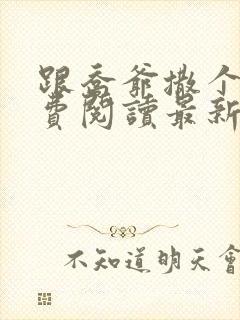 跟喬爺撒个
費閱讀最新
不知道明天會